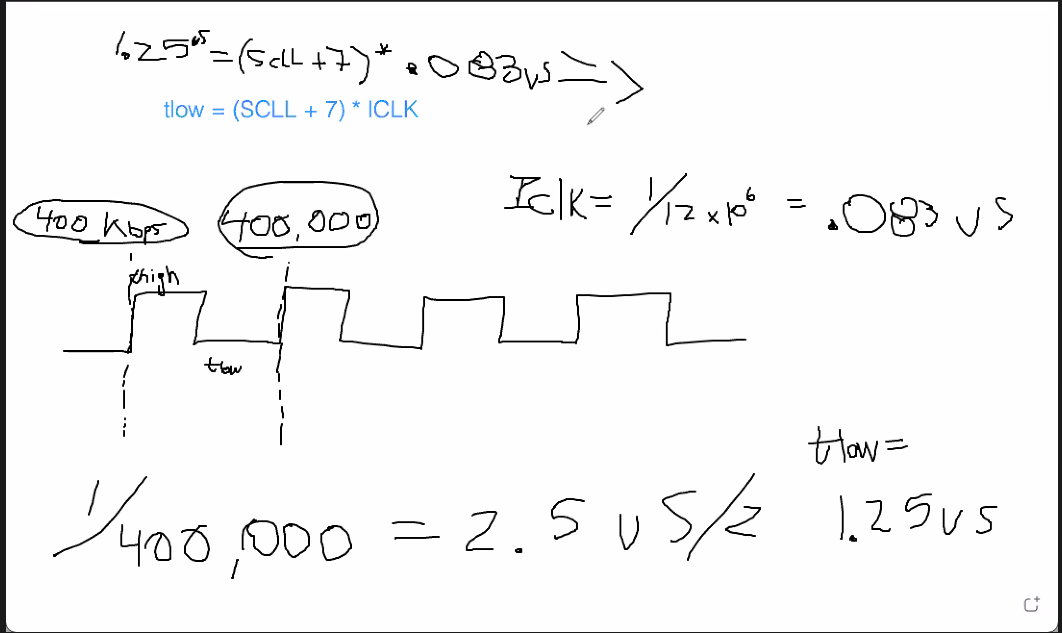 1.25us = (SCLL + 7) * .083us =>
tlow = (SCLL + 7) * ICLK
Iclk = 1/12 x 10^6 = .083 us
400 Kbps 400,000
thigh
tlow
tlow =
1/400,000 = 2.5 us/2 1.25us